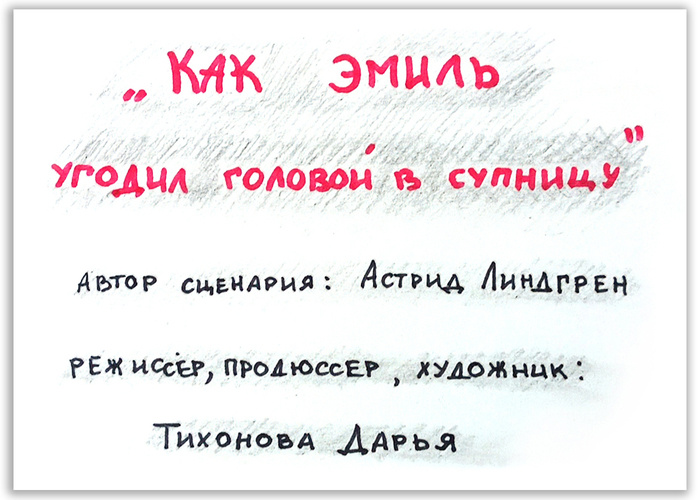 „КАК ЭМИЛЬ
УГОДИЛ ГОЛОВОЙ В СУПНИЦУ"
АВТОР СЦЕНАРИЯ: АСТРИД ЛИНДГРЕН
РЕЖИССЁР, ПРОДЮССЕР, ХУДОЖНИК:
ТИХОНОВА ДАРЬЯ